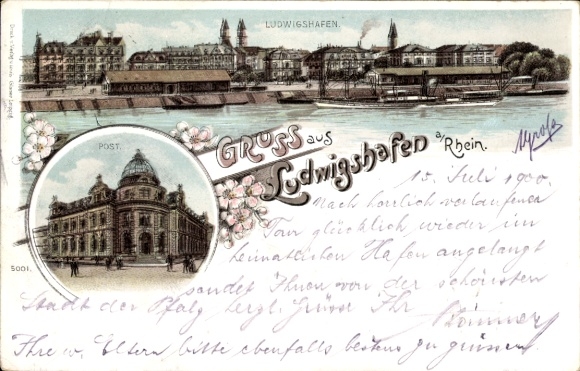 LUDWIGSHAFEN.
GRUSS aus
Ludwigshafen a/Rhein.
POST.
5001.
15. Juli 1900.
Nach herrlich verlaufener
Tour glücklich wieder im
heimatlichen Hafen angelangt
sendet Ihnen von der schönsten
Stadt der Pfalz herzl. Grüsse Ihr
Ihre w. Eltern bitte ebenfalls bestens zu grüssen